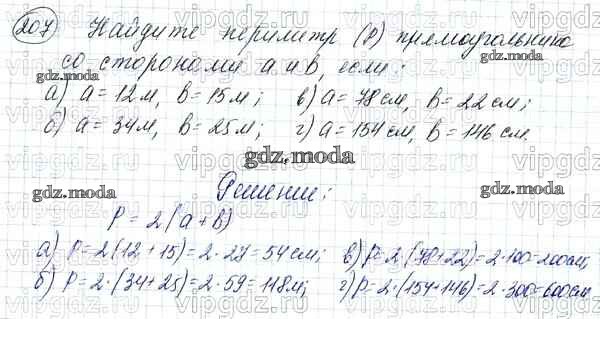 207 Найдите периметр (P) прямоугольника
со сторонами a и b, если:
а) a = 12 м, b = 15 м; в) a = 78 см, b = 22 см;
б) a = 34 м, b = 25 м; г) a = 154 см, b = 146 см.
gdz.moda
Решение:
P = 2·(a + b)
а) P = 2(12 + 15) = 2·27 = 54 см; в) P = 2·(78+22) = 2·100 = 200 см;
б) P = 2·(34+25) = 2·59 = 118 м; г) P = 2·(154+146) = 2·300 = 600 см
gdz.moda
gdz.moda
gdz.moda
gdz.moda
gdz.moda
vipgdz.ru